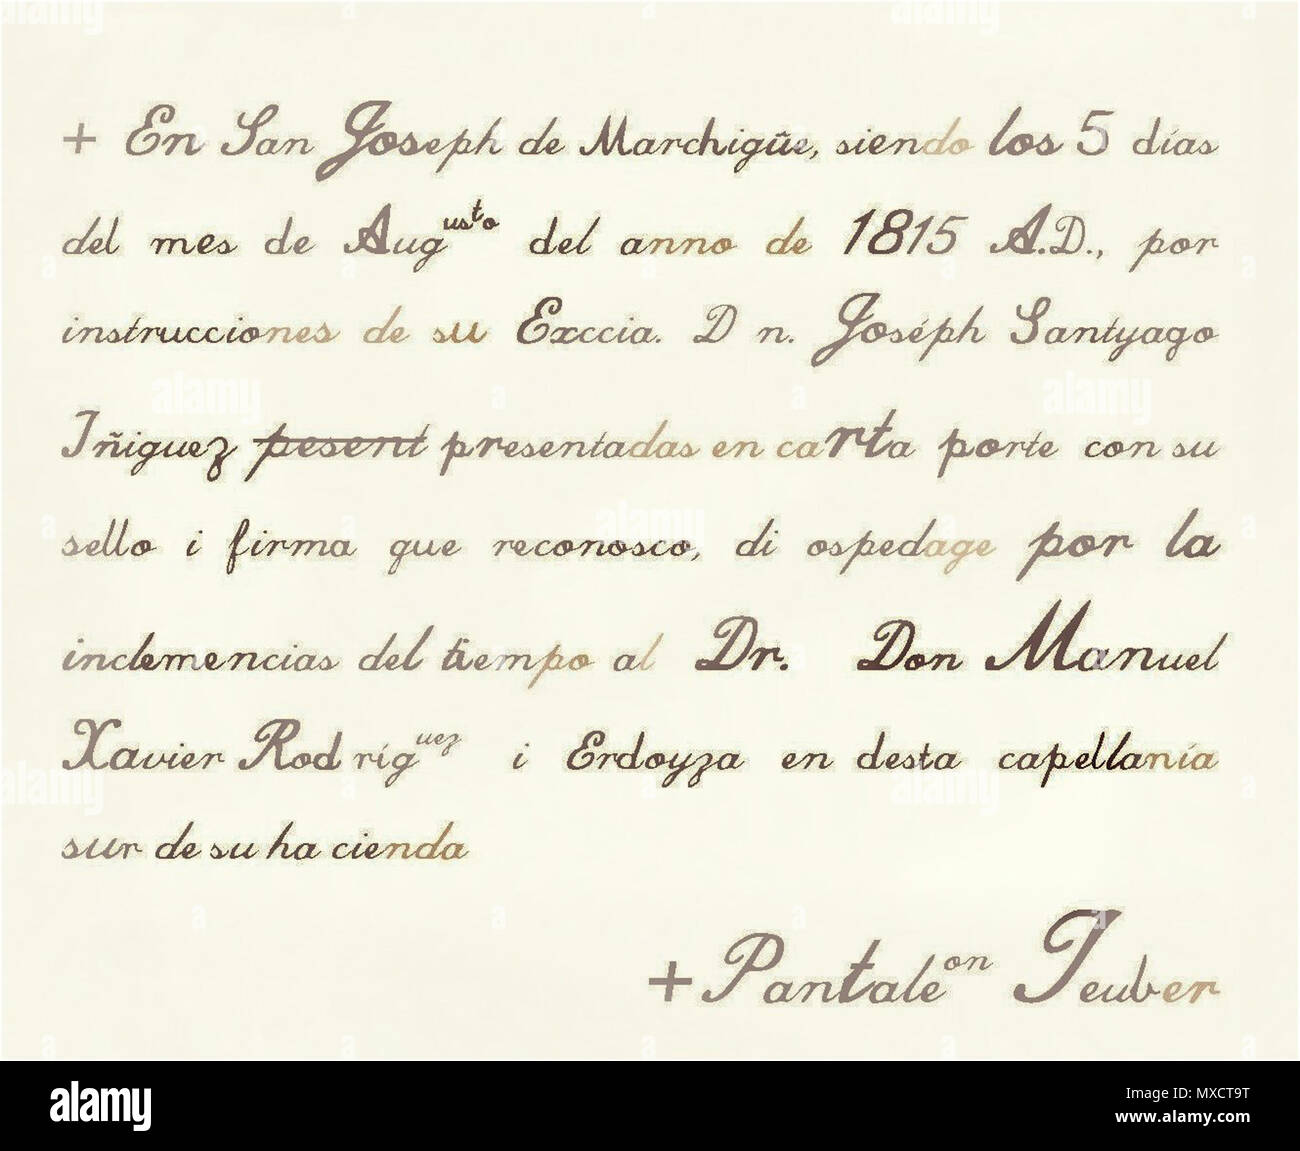 + En San Joseph de Marchigüe, siendo los 5 días
del mes de Augusto del anno de 1815 A.D., por
instrucciones de su Exccia. D n. Joséph Santyago
Iñiguez pesent presentadas en carta porte con su
sello i firma que reconosco, di ospedage por la
inclemencias del tiempo al Dr. Don Manuel
Xavier Rodríguez i Erdoyza en desta capellanía
sur de su ha cienda
+ Pantaleon Teuber
alamy
Image ID: MXCT9T
www.alamy.com